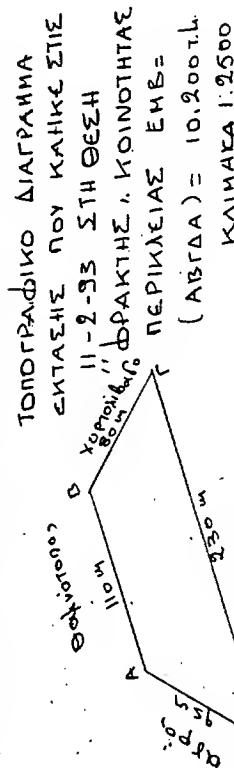 ΤΟΠΟΓΡΑΦΙΚΟ ΔΙΑΓΡΑΜΜΑ
ΕΚΤΑΣΗΣ ΠΟΥ ΚΑΗΚΕ ΣΤΙΣ
11-2-93 ΣΤΗ ΘΕΣΗ
"ΦΡΑΚΤΗΣ" ΚΟΙΝΟΤΗΤΑΣ
ΠΕΡΙΚΛΕΙΑΣ ΕΜΒ=
(ΑΒΓΔΑ)= 10.200τ.μ.
ΚΛΙΜΑΚΑ 1:2500
Θαμνότοπος
Β
χορτολίβαδο
80 m
110 m
Γ
Α
230 m
95,5
αγρός